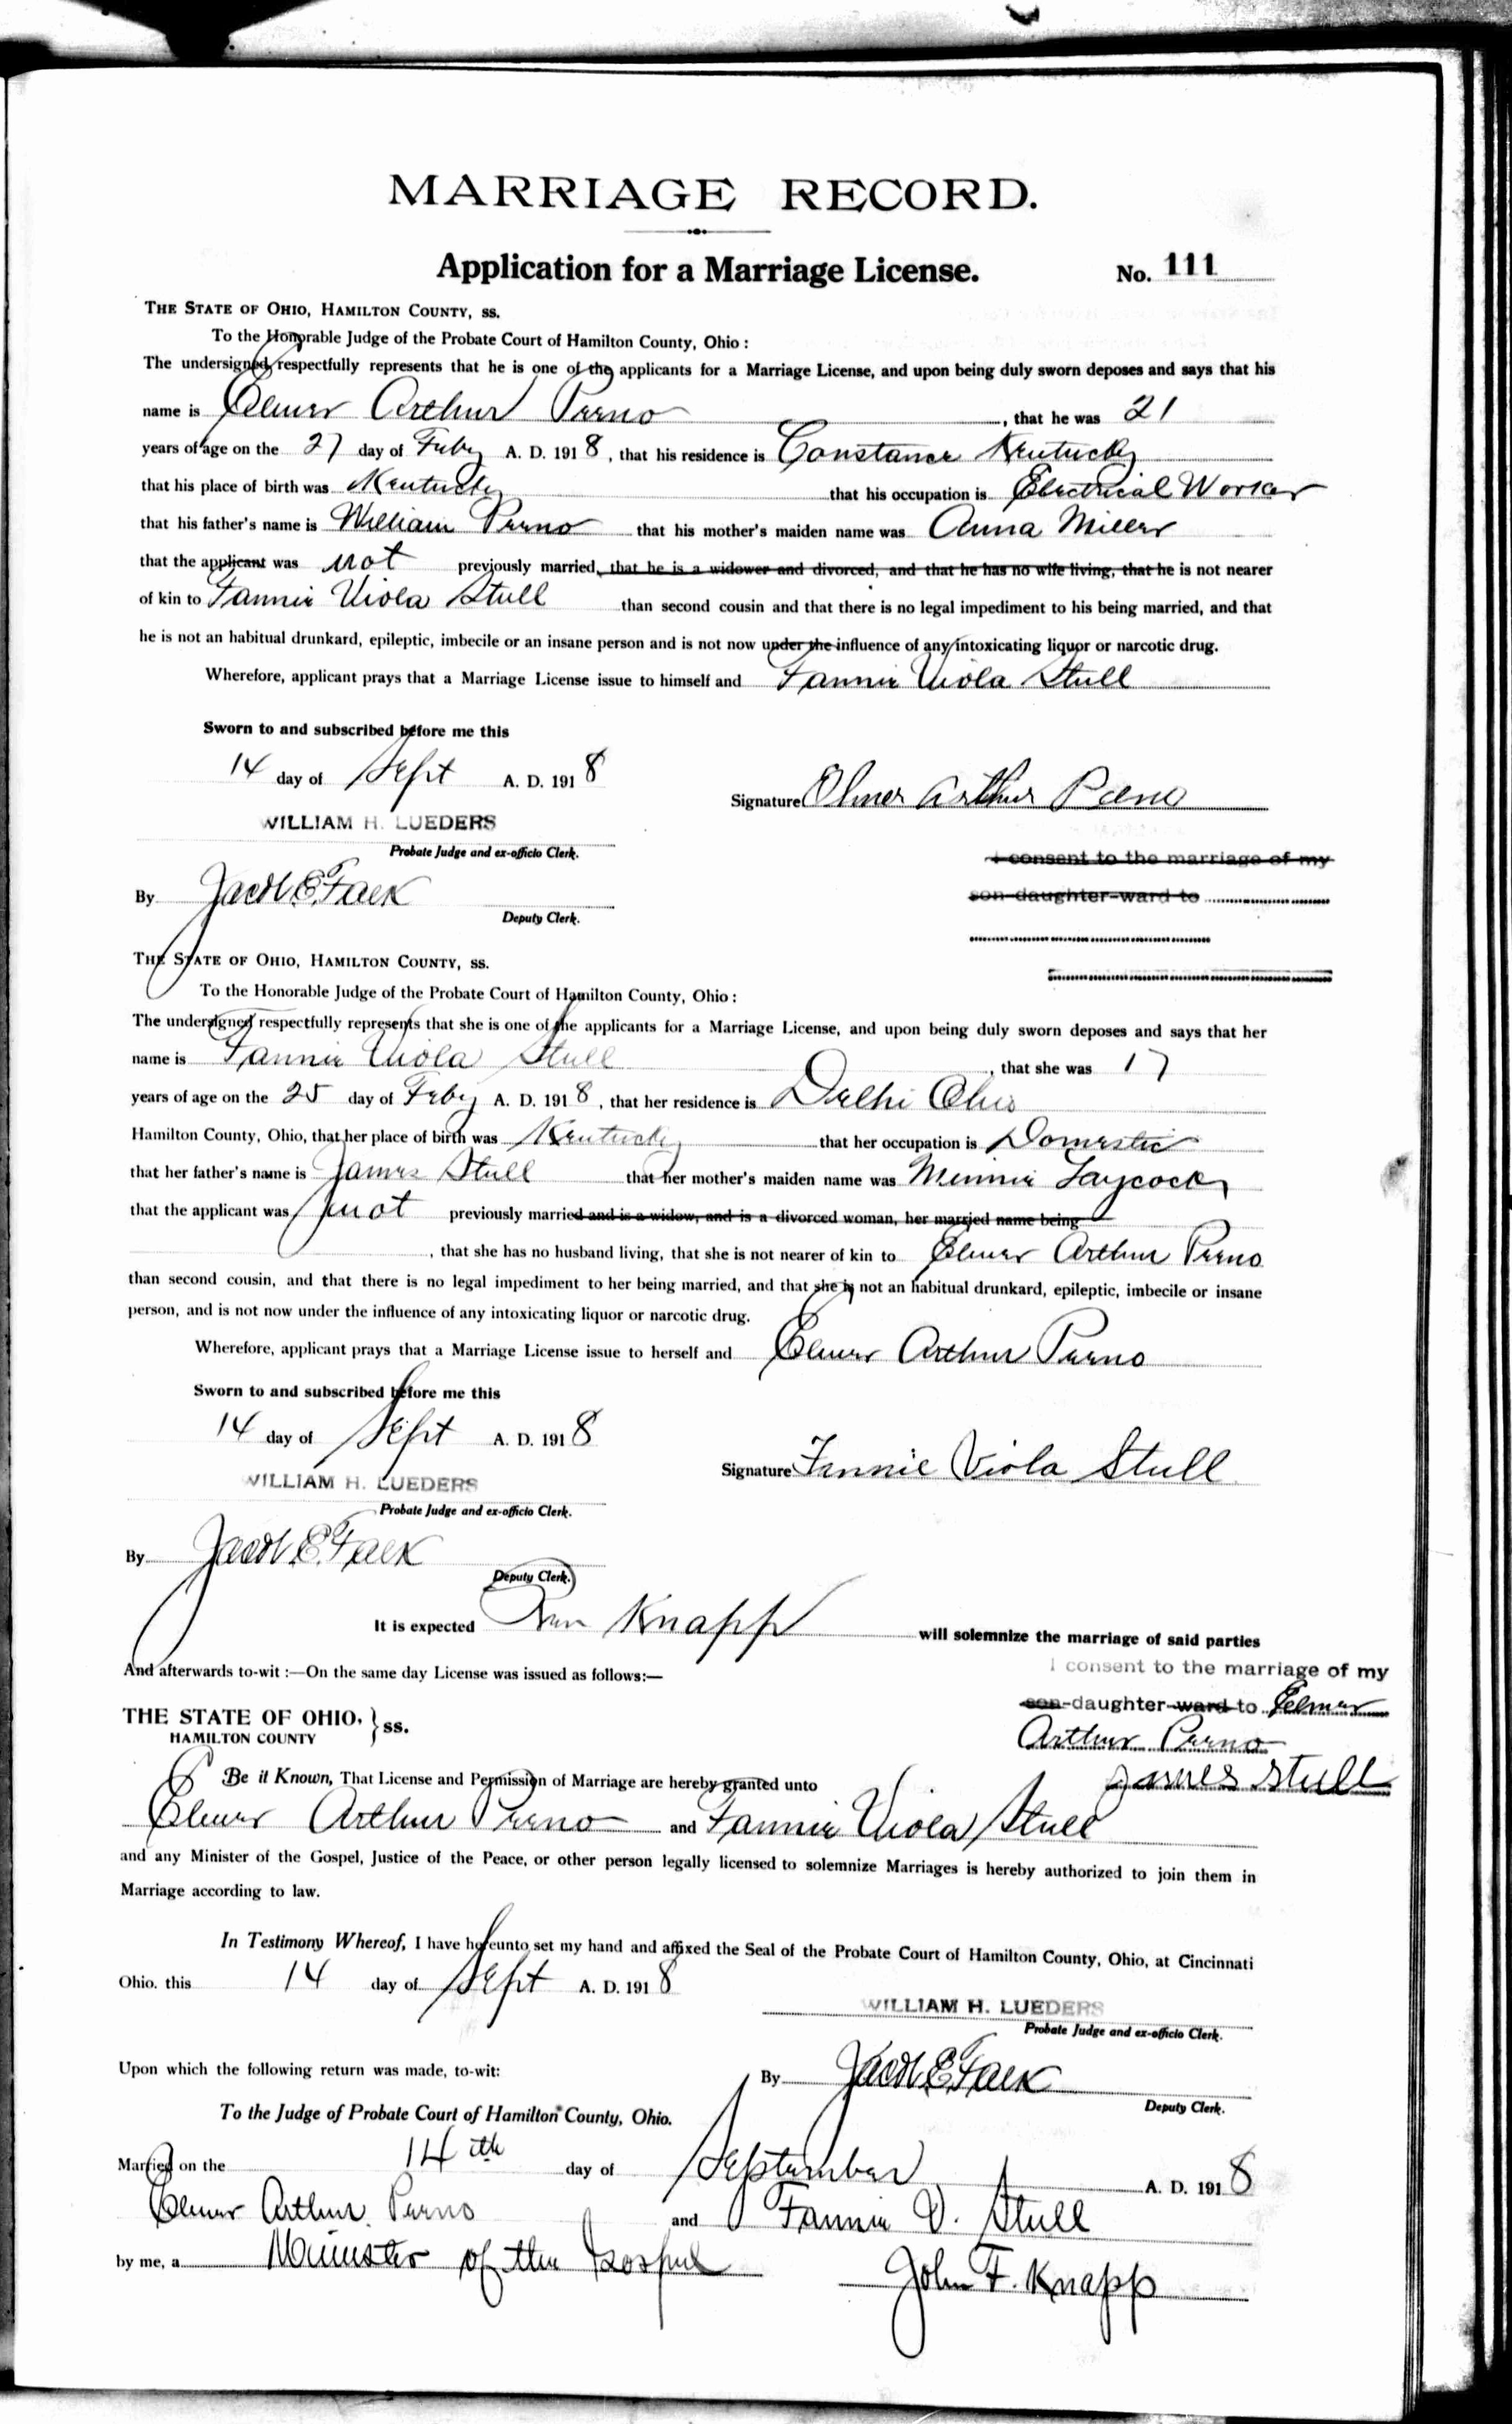 MARRIAGE RECORD.
Application for a Marriage License. No. 111
THE STATE OF OHIO, HAMILTON COUNTY, ss.
To the Honorable Judge of the Probate Court of Hamilton County, Ohio :
The undersigned respectfully represents that he is one of the applicants for a Marriage License, and upon being duly sworn deposes and says that his
name is Elmer Arthur Perno , that he was 21
years of age on the 27 day of Feby A. D. 1918, that his residence is Constance Kentucky
that his place of birth was Kentucky that his occupation is Electrical Worker
that his father's name is William Perno that his mother's maiden name was Anna Miller
that the applicant was not previously married, that he is a widower and divorced, and that he has no wife living, that he is not nearer
of kin to Fannie Viola Stull than second cousin and that there is no legal impediment to his being married, and that
he is not an habitual drunkard, epileptic, imbecile or an insane person and is not now under the influence of any intoxicating liquor or narcotic drug.
Wherefore, applicant prays that a Marriage License issue to himself and Fannie Viola Stull
Sworn to and subscribed before me this
14 day of Sept A. D. 1918
Signature Elmer Arthur Perno
WILLIAM H. LUEDERS
Probate Judge and ex-officio Clerk.
I consent to the marriage of my
son-daughter-ward to
By Jacob E. Falk
Deputy Clerk.
THE STATE OF OHIO, HAMILTON COUNTY, ss.
To the Honorable Judge of the Probate Court of Hamilton County, Ohio :
The undersigned respectfully represents that she is one of the applicants for a Marriage License, and upon being duly sworn deposes and says that her
name is Fannie Viola Stull , that she was 17
years of age on the 25 day of Feby A. D. 1918, that her residence is Delhi Ohio
Hamilton County, Ohio, that her place of birth was Kentucky that her occupation is Domestic
that her father's name is James Stull that her mother's maiden name was Minnie Laycock
that the applicant was not previously married and is a widow, and is a divorced woman, her married name being
, that she has no husband living, that she is not nearer of kin to Elmer Arthur Perno
than second cousin, and that there is no legal impediment to her being married, and that she is not an habitual drunkard, epileptic, imbecile or insane
person, and is not now under the influence of any intoxicating liquor or narcotic drug.
Wherefore, applicant prays that a Marriage License issue to herself and Elmer Arthur Perno
Sworn to and subscribed before me this
14 day of Sept A. D. 1918
Signature Fannie Viola Stull
WILLIAM H. LUEDERS
Probate Judge and ex-officio Clerk.
By Jacob E. Falk
Deputy Clerk.
It is expected Knapp will solemnize the marriage of said parties
And afterwards to-wit :—On the same day License was issued as follows:—
I consent to the marriage of my
son-daughter-ward to Elmer
Arthur Perno
James Stull
THE STATE OF OHIO, } ss.
HAMILTON COUNTY
Be it Known, That License and Permission of Marriage are hereby granted unto
Elmer Arthur Perno and Fannie Viola Stull
and any Minister of the Gospel, Justice of the Peace, or other person legally licensed to solemnize Marriages is hereby authorized to join them in
Marriage according to law.
In Testimony Whereof, I have hereunto set my hand and affixed the Seal of the Probate Court of Hamilton County, Ohio, at Cincinnati
Ohio. this 14 day of Sept A. D. 1918
WILLIAM H. LUEDERS
Probate Judge and ex-officio Clerk.
Upon which the following return was made, to-wit:
By Jacob E. Falk
Deputy Clerk.
To the Judge of Probate Court of Hamilton County, Ohio.
Married on the 14th day of September A. D. 1918
Elmer Arthur Perno and Fannie V. Stull
by me, a Minister of the Gospel John F. Knapp